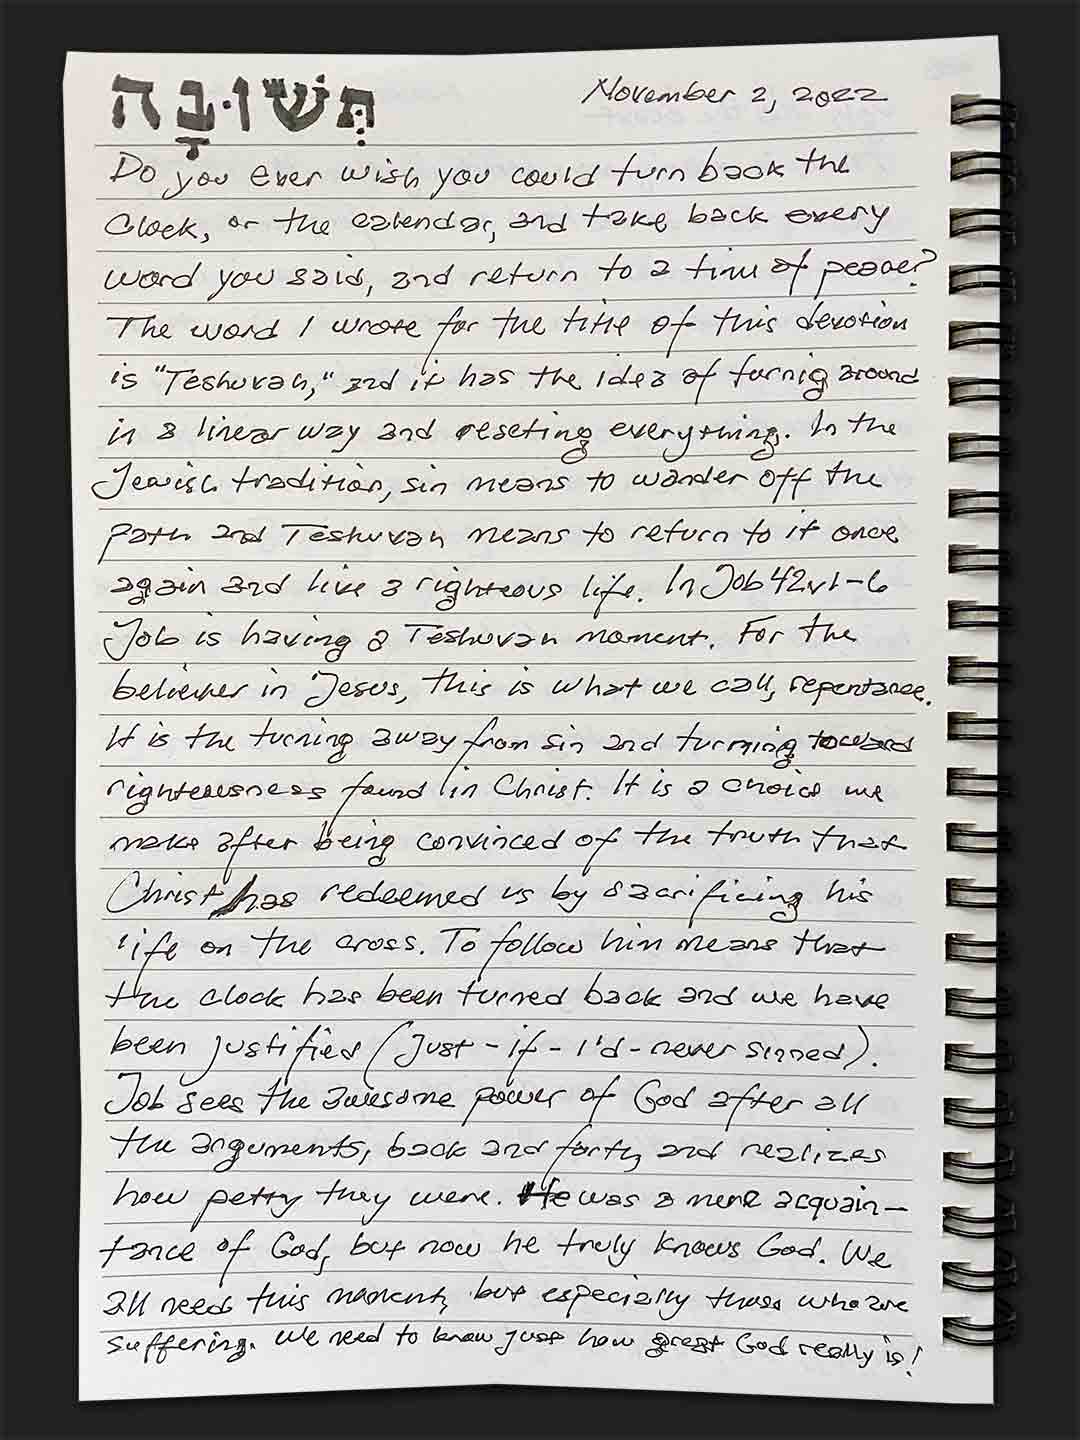 תְּשׁוּבָה
November 2, 2022
Do you ever wish you could turn back the
clock, or the calendar, and take back every
word you said, and return to a time of peace?
The word I wrote for the title of this devotion
is "Teshuvah," and it has the idea of turnig around
in a linear way and reseting everything. In the
Jewish tradition, sin means to wander off the
path and Teshuvah means to return to it once
again and live a righteous life. In Job 42v1-6
Job is having a Teshuvah moment. For the
believer in Jesus, this is what we call, repentance.
It is the turning away from sin and turning toward
righteousness found in Christ. It is a choice we
make after being convinced of the truth that
Christ has redeemed us by sacrificing his
life on the cross. To follow him means that
the clock has been turned back and we have
been justified (Just-if-I'd-never sinned).
Job sees the awesome power of God after all
the arguments, back and forth, and realizes
how petty they were. He was a mere acquain-
tance of God, but now he truly knows God. We
all need this moment, but especially those who are
suffering. We need to know just how great God really is!